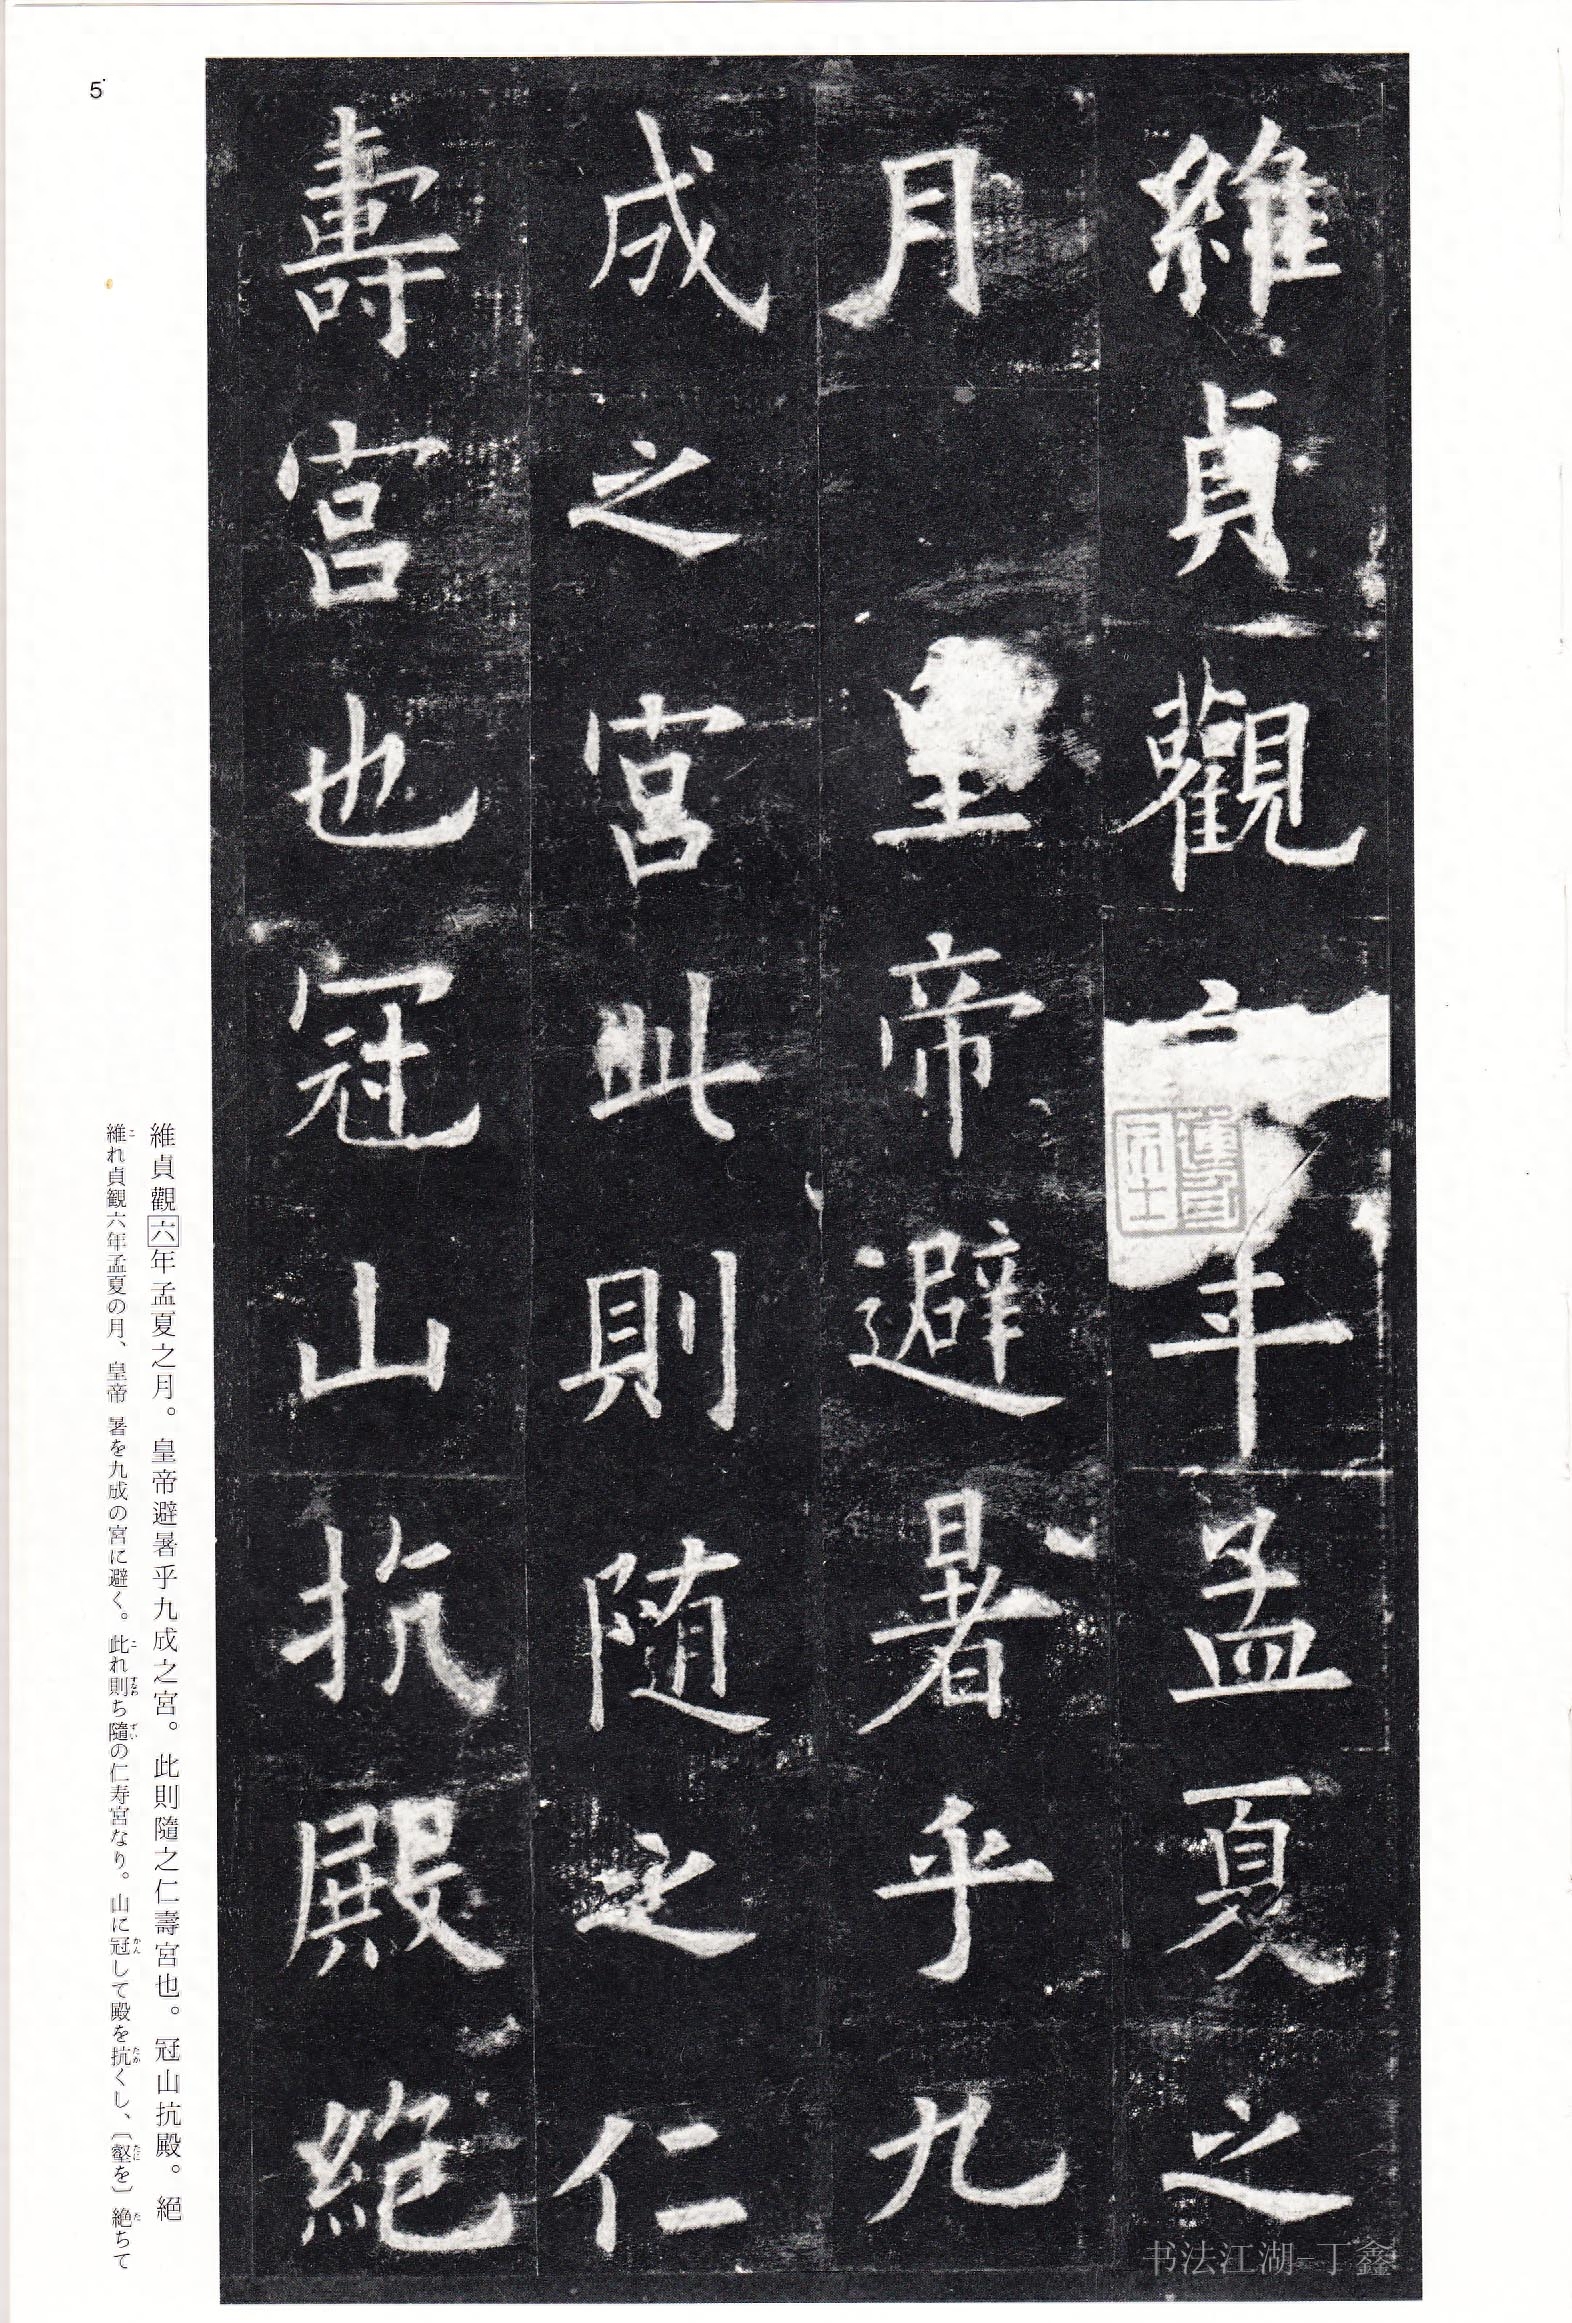 維貞觀六年孟夏之
月皇帝避暑乎九
成之宮此則隨之仁
壽宮也冠山抗殿絕
維貞觀六年孟夏之月。皇帝避暑乎九成之宮。此則隨之仁壽宮也。冠山抗殿。絕
維れ貞観六年孟夏の月、皇帝 暑を九成の宮に避く。此れ則ち隨の仁寿宮なり。山に冠して殿を抗くし、〔壑を〕絶ちて
5
书法江湖-丁鑫